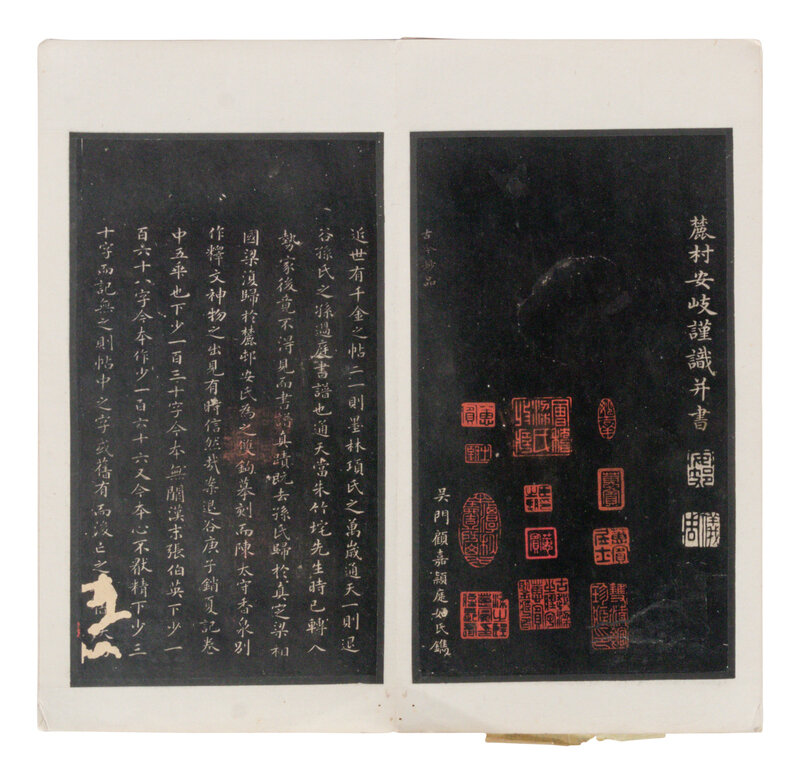 麓村安岐謹識并書
吳門顧嘉穎庭如氏鐫
古今妙品
近世有千金之帖二一則墨林項氏之萬歲通天一則退
谷孫氏之孫過庭書譜也通天當朱竹垞先生時已轉入
勢家後竟不得見而書譜真蹟既去孫氏歸於真定梁相
國梁復歸於麓邨安氏為之雙鉤摹刻而陳太守香泉別
作釋文神物之出見有時信然哉案退谷庚子銷夏記卷
中五乖也下少一百三十字今本無闕漢末張伯英下少一
百六十八字今本作少一百六十六又今本心不猒精下少三
十字而記無之則帖中之字或舊有而後亡之